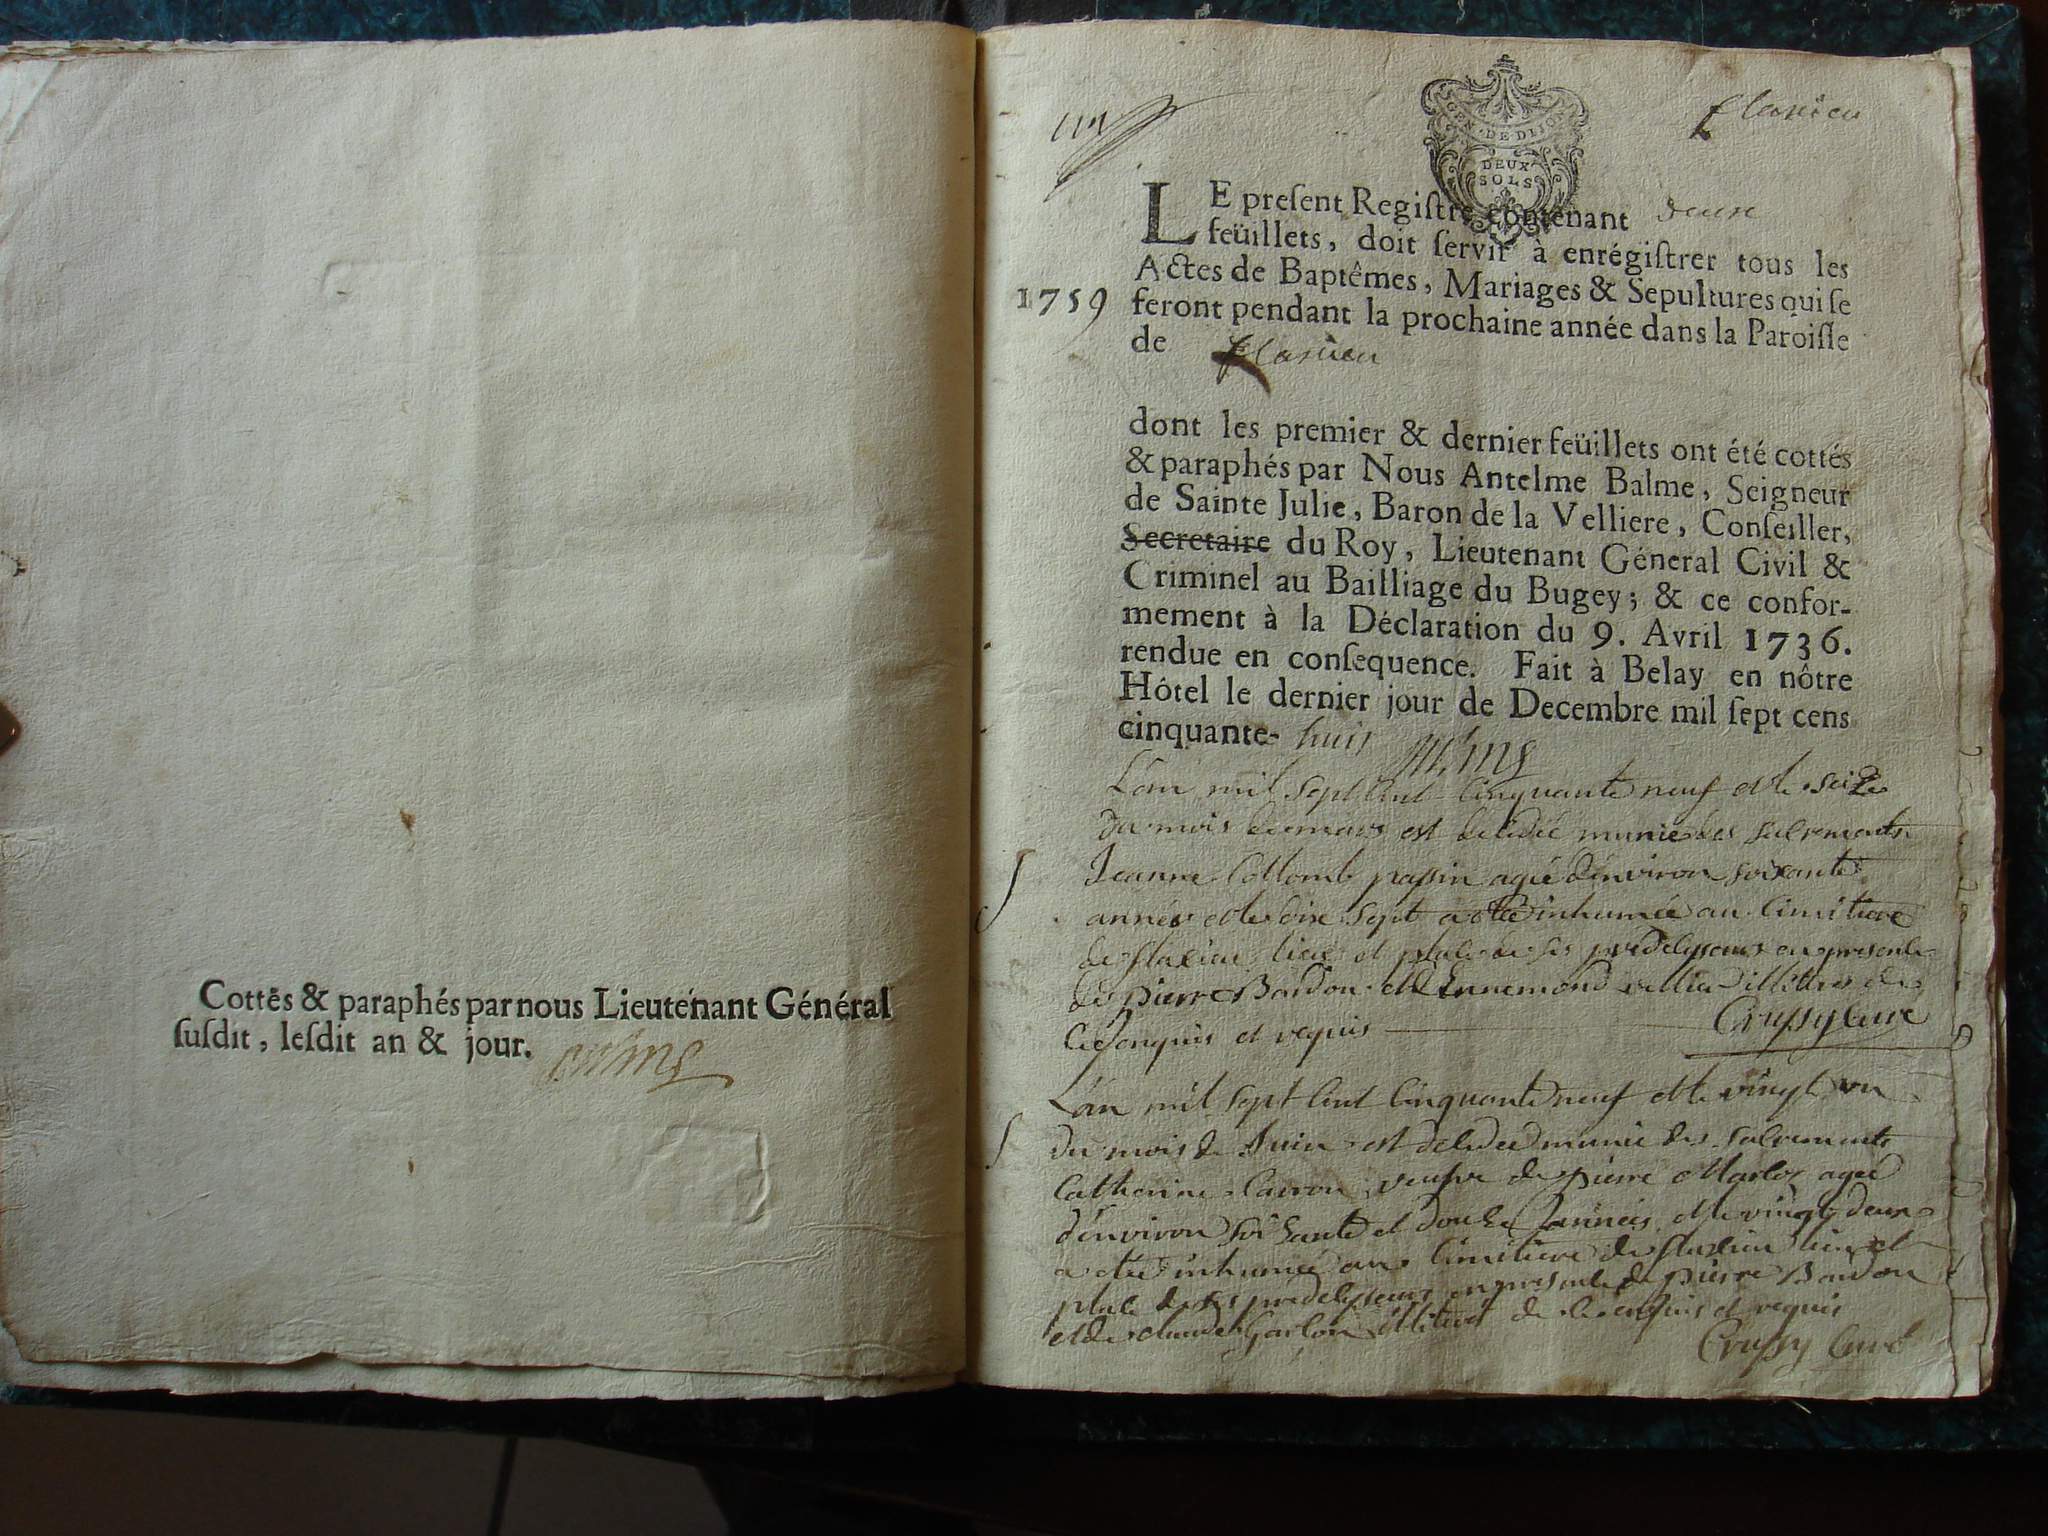 Cottés & paraphés par nous Lieutenant Général
susdit, lesdit an & jour.
flaxieu
GEN·DE DIJON
DEUX
SOLS
LE present Registre contenant deux
feüillets, doit servir à enrégistrer tous les
Actes de Baptêmes, Mariages & Sepultures qui se
1759 feront pendant la prochaine année dans la Paroisse
de flaxieu
dont les premier & dernier feüillets ont été cottés
& paraphés par Nous Antelme Balme, Seigneur
de Sainte Julie, Baron de la Velliere, Conseiller,
Secretaire du Roy, Lieutenant Géneral Civil &
Criminel au Bailliage du Bugey; & ce confor-
mement à la Déclaration du 9. Avril 1736.
rendue en consequence. Fait à Belay en nôtre
Hôtel le dernier jour de Decembre mil sept cens
cinquante- huit
L'an mil sept cent cinquante neuf et le seize
du mois de mars est decedée munie des sacrements
S Jeanne Collomb passin agée d'environ soixante
années et le dix sept a été inhumée au cimitiere
de flaxieu lieu et place de ses predecesseurs en presence
de pierre Bardon et d'Ennemond illitres de
ce enquis et requis Crussy Curé
L'an mil sept cent cinquante neuf et le vingt un
S du mois de Juin est decedée munie des sacrements
Catherine Carron veufve de pierre agée
d'environ soisante et douze années et le vingt deux
a été inhumée au cimitiere de flaxieu lieu et
place de ses predecesseurs en presence de pierre Bardon
et de claude illitres de ce enquis et requis
Crussy Curé